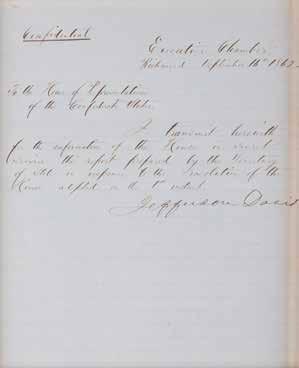 Confidential
Executive Chamber
Richmond September 1862
To the House of Representatives
of the Confederate States
I transmit herewith
for the information of the House in secret
session the report prepared by the Secretary
of State in response to the Resolution of the
House adopted on the 1st instant
Jefferson Davis